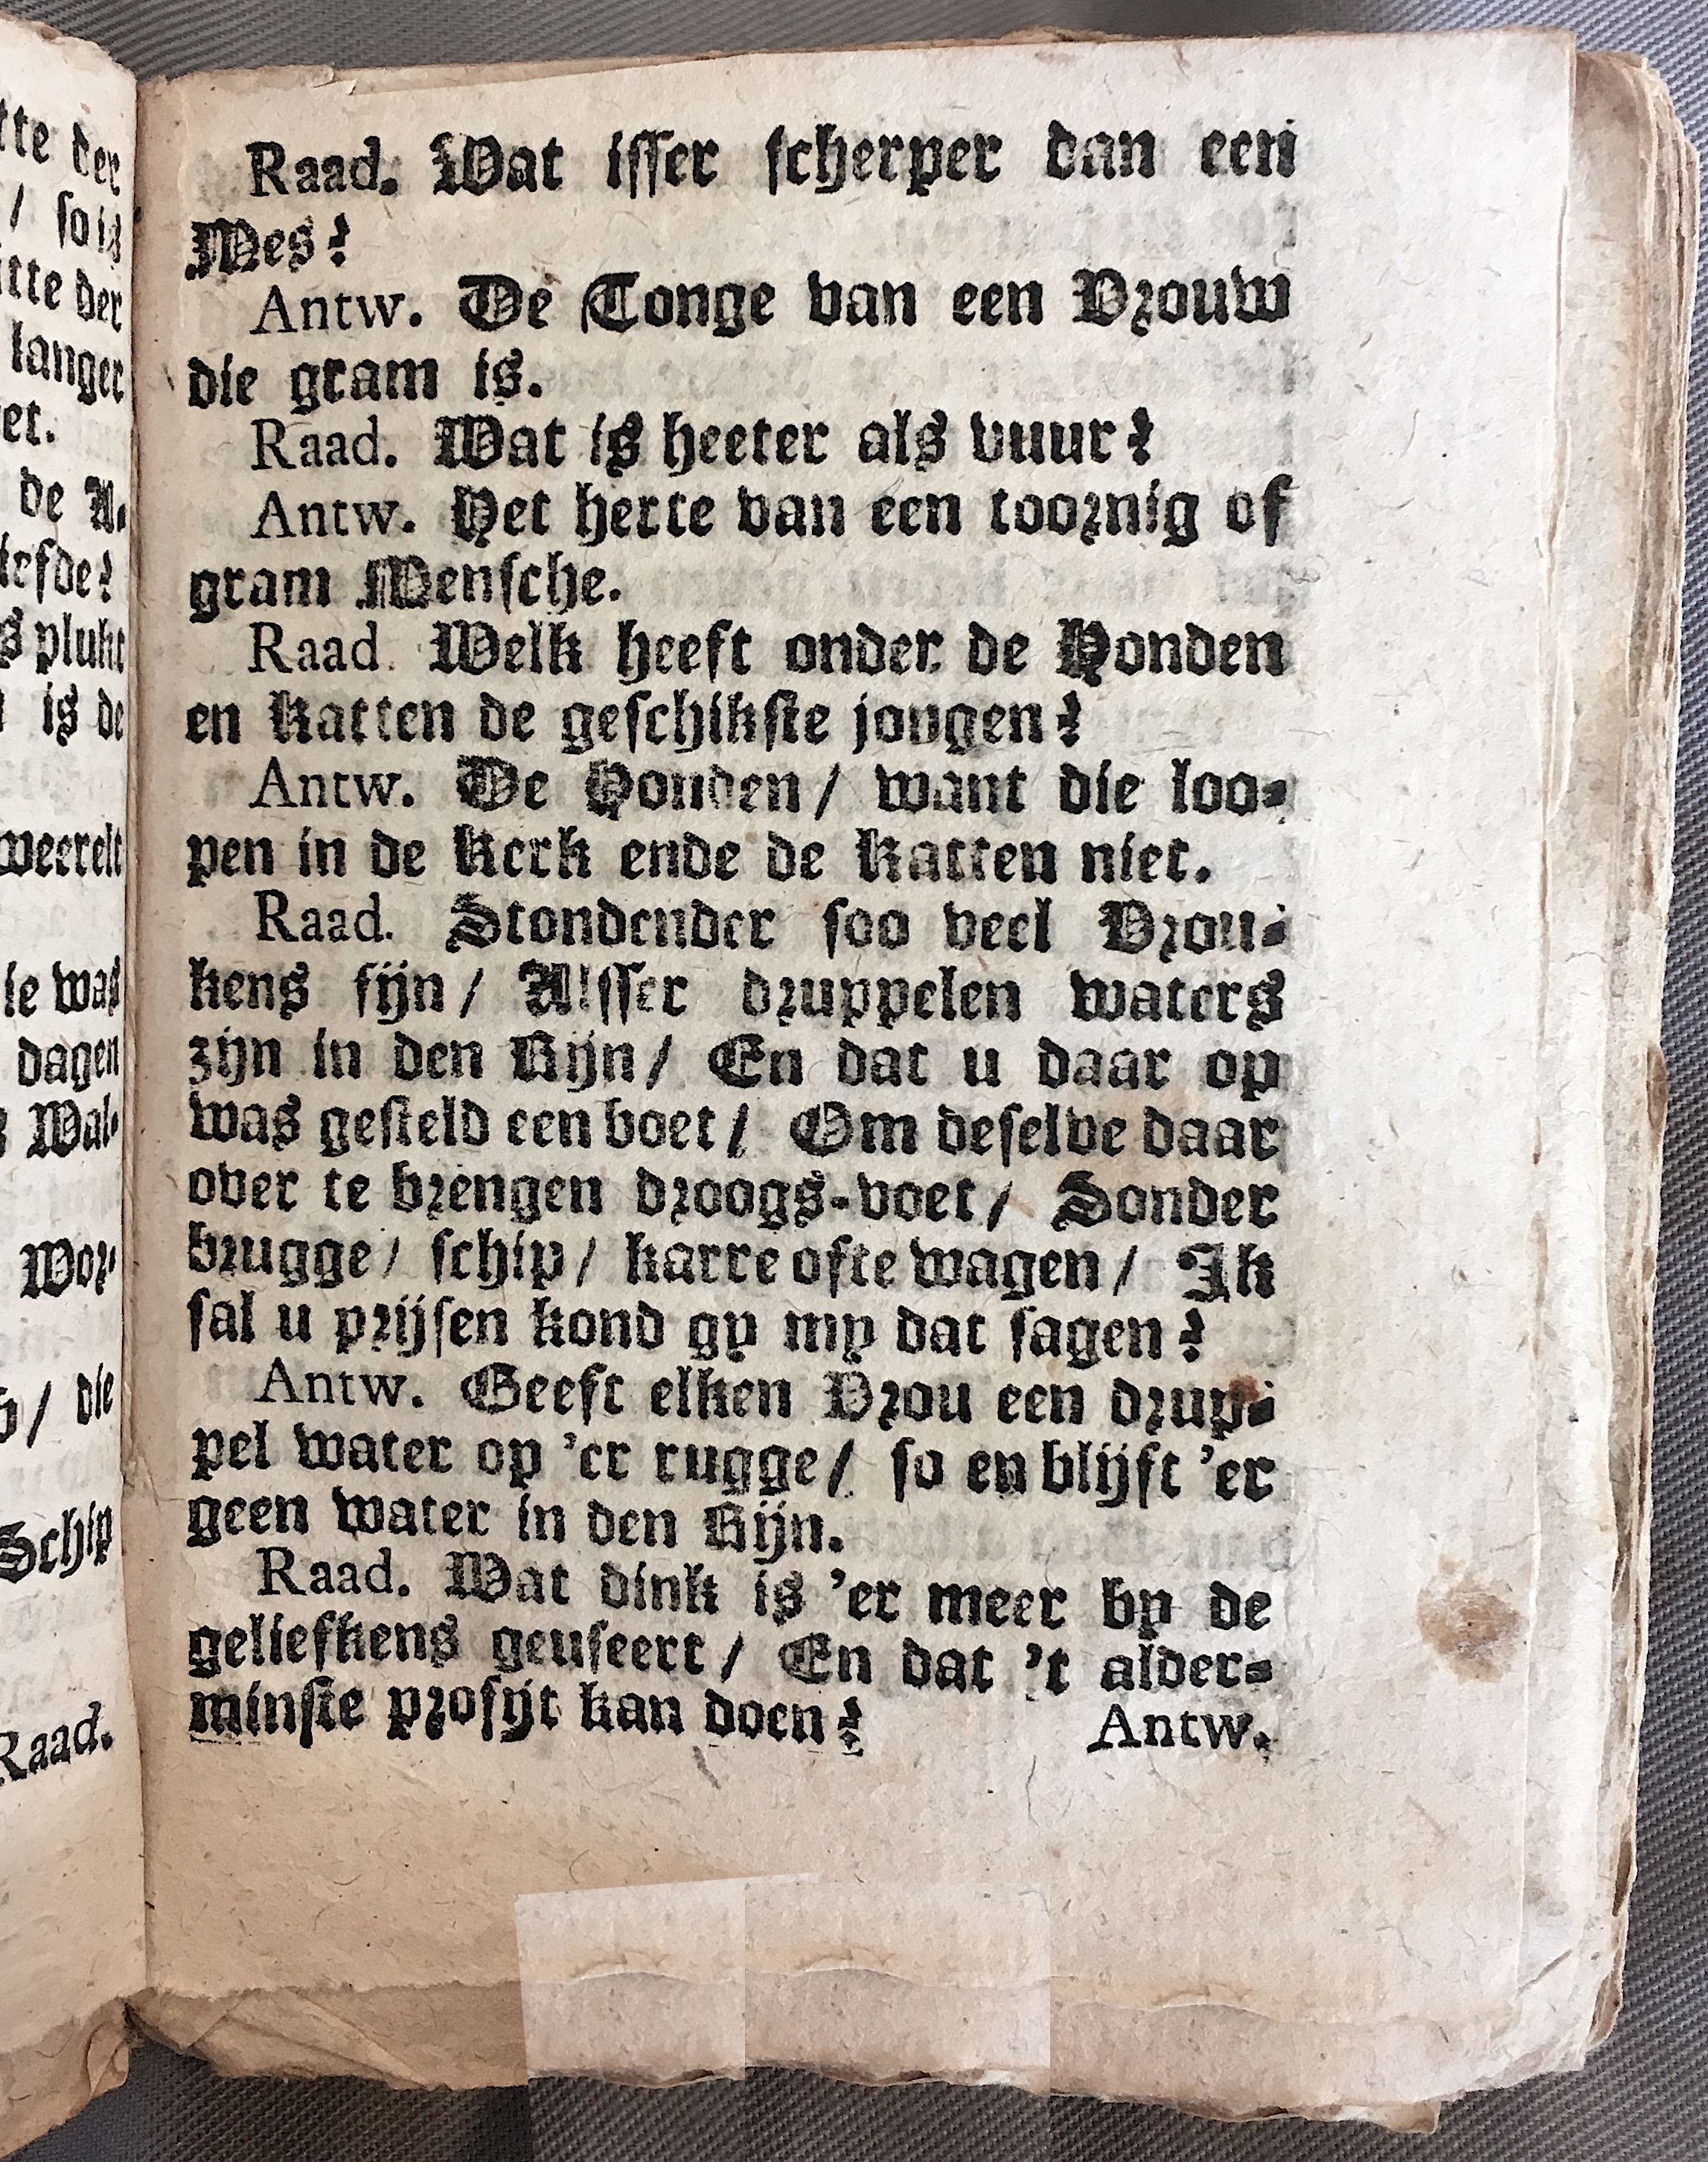 tte der
/ so is
itte der
langer
et.
de A.
iefde?
s plukt
is de
weerelt
ie was
dagen
Wal-
Wor-
/ die
Schip
Raad.
Raad. Wat isser scherper dan een
Mes?
Antw. De Tonge van een Vrouw
die gram is.
Raad. Wat is heeter als vuur?
Antw. Het herte van een toornig of
gram Mensche.
Raad. Welk heeft onder de Honden
en Katten de geschikste jongen?
Antw. De Honden / want die loo-
pen in de Kerk ende de Katten niet.
Raad. Stondender soo veel Vrou-
kens sijn / Alsser druppelen waters
zijn in den Rijn / En dat u daar op
was gesteld een boet / Om deselve daar
over te brengen droogs-voet / Sonder
brugge / schip / karre ofte wagen / Ik
sal u prijsen kond gy my dat sagen?
Antw. Geeft elken Vrou een drup-
pel water op 'er rugge / so en blijft 'er
geen water in den Rijn.
Raad. Wat dink is 'er meer by de
geliefkens geuseert / En dat 't alder-
minste profijt kan doen?
Antw.